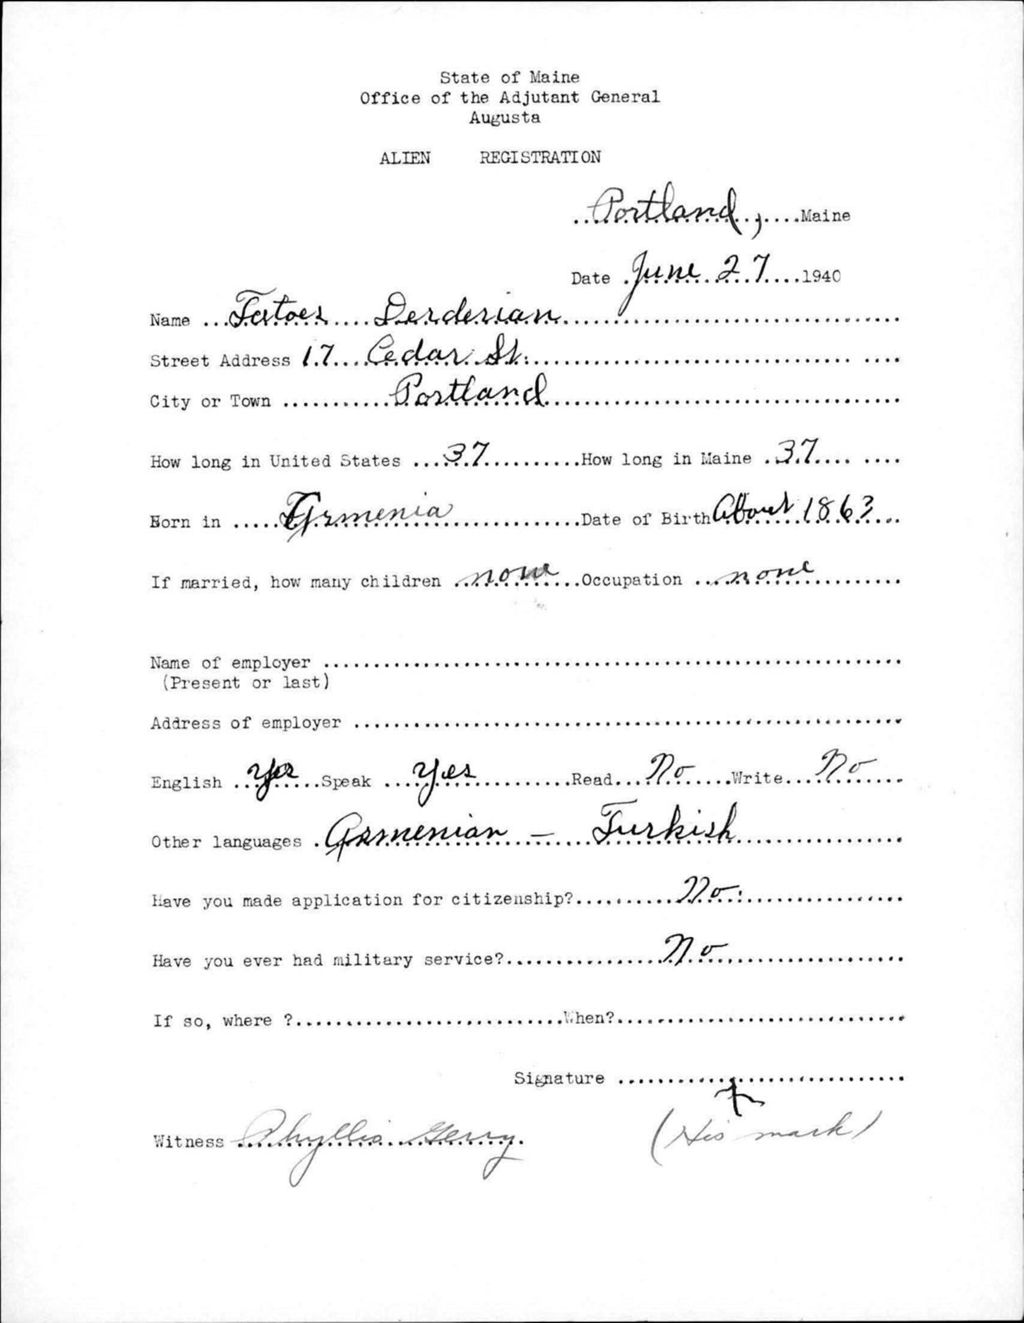 State of Maine
Office of the Adjutant General
Augusta
ALIEN REGISTRATION
Portland, Maine
Date June 27 1940
Name Tatoes Derderian
Street Address 17 Cedar St.
City or Town Portland
How long in United States 37 How long in Maine 37
Born in Armenia Date of Birth About 1863
If married, how many children none Occupation none
Name of employer
(Present or last)
Address of employer
English Yes Speak Yes Read No Write No
Other languages Armenian – Turkish
Have you made application for citizenship? No.
Have you ever had military service? No
If so, where ? When?
Signature X
Witness Phyllis Gerry (His mark)